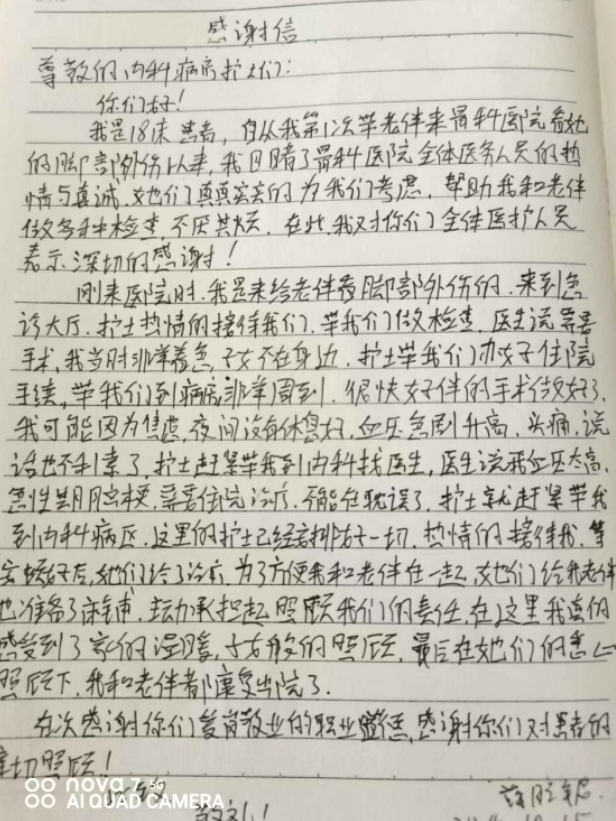 感谢信
尊敬的内科病房护士们:
你们好!
我是18床患者,自从我第1次带老伴来骨科医院看她
的脚部外伤以来,我目睹了骨科医院全体医务人员的热
情与真诚,她们真真实实的为我们考虑,帮助我和老伴
做各种检查,不厌其烦。在此,我对你们全体医护人员
表示深切的感谢!
刚来医院时,我是来给老伴看脚部外伤的,来到急
诊大厅,护士热情的接待我们,带我们做检查,医生说需要
手术,我当时非常着急,子女不在身边,护士带我们办好住院
手续,带我们到病房,非常周到,很快好伴的手术做好了,
我可能因为焦虑,夜间没有休息好,血压急剧升高,头痛,说
话也不利索了,护士赶紧带我到内科找医生,医生说我血压太高,
急性脑梗,需要住院治疗,不能在耽误了,护士就赶紧带我
到内科病区,这里的护士已经安排好一切,热情的接待我,等
安顿好后,她们给了治疗,为了方便我和老伴住一起,她们给我老伴
也准备了床铺,主动承担起照顾我们的责任,在这里我真的
感受到了家的温暖,子女般的照顾,最后在她们的悉心
照顾下,我和老伴都康复出院了。
在次感谢你们爱岗敬业的职业道德,感谢你们对患者的
切照顾!
敬礼!
nova 7 5G
AI QUAD CAMERA